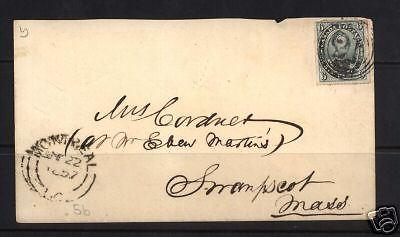 Mrs Cordner
(at Mr Eben Martin's)
Swampscot
Mass
MONTREAL
22
1857
5b